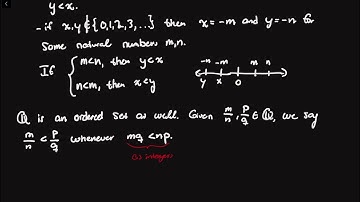 y < x.
- if x, y ∉ {0, 1, 2, 3, ...} then x = -m and y = -n for
some natural numbers m, n.
If { m < n, then y < x
n < m, then x < y
-n -m m n
y x 0
ℚ is an ordered set as well. Given m/n, p/q ∈ ℚ, we say
m/n < p/q whenever mq < np.
integers